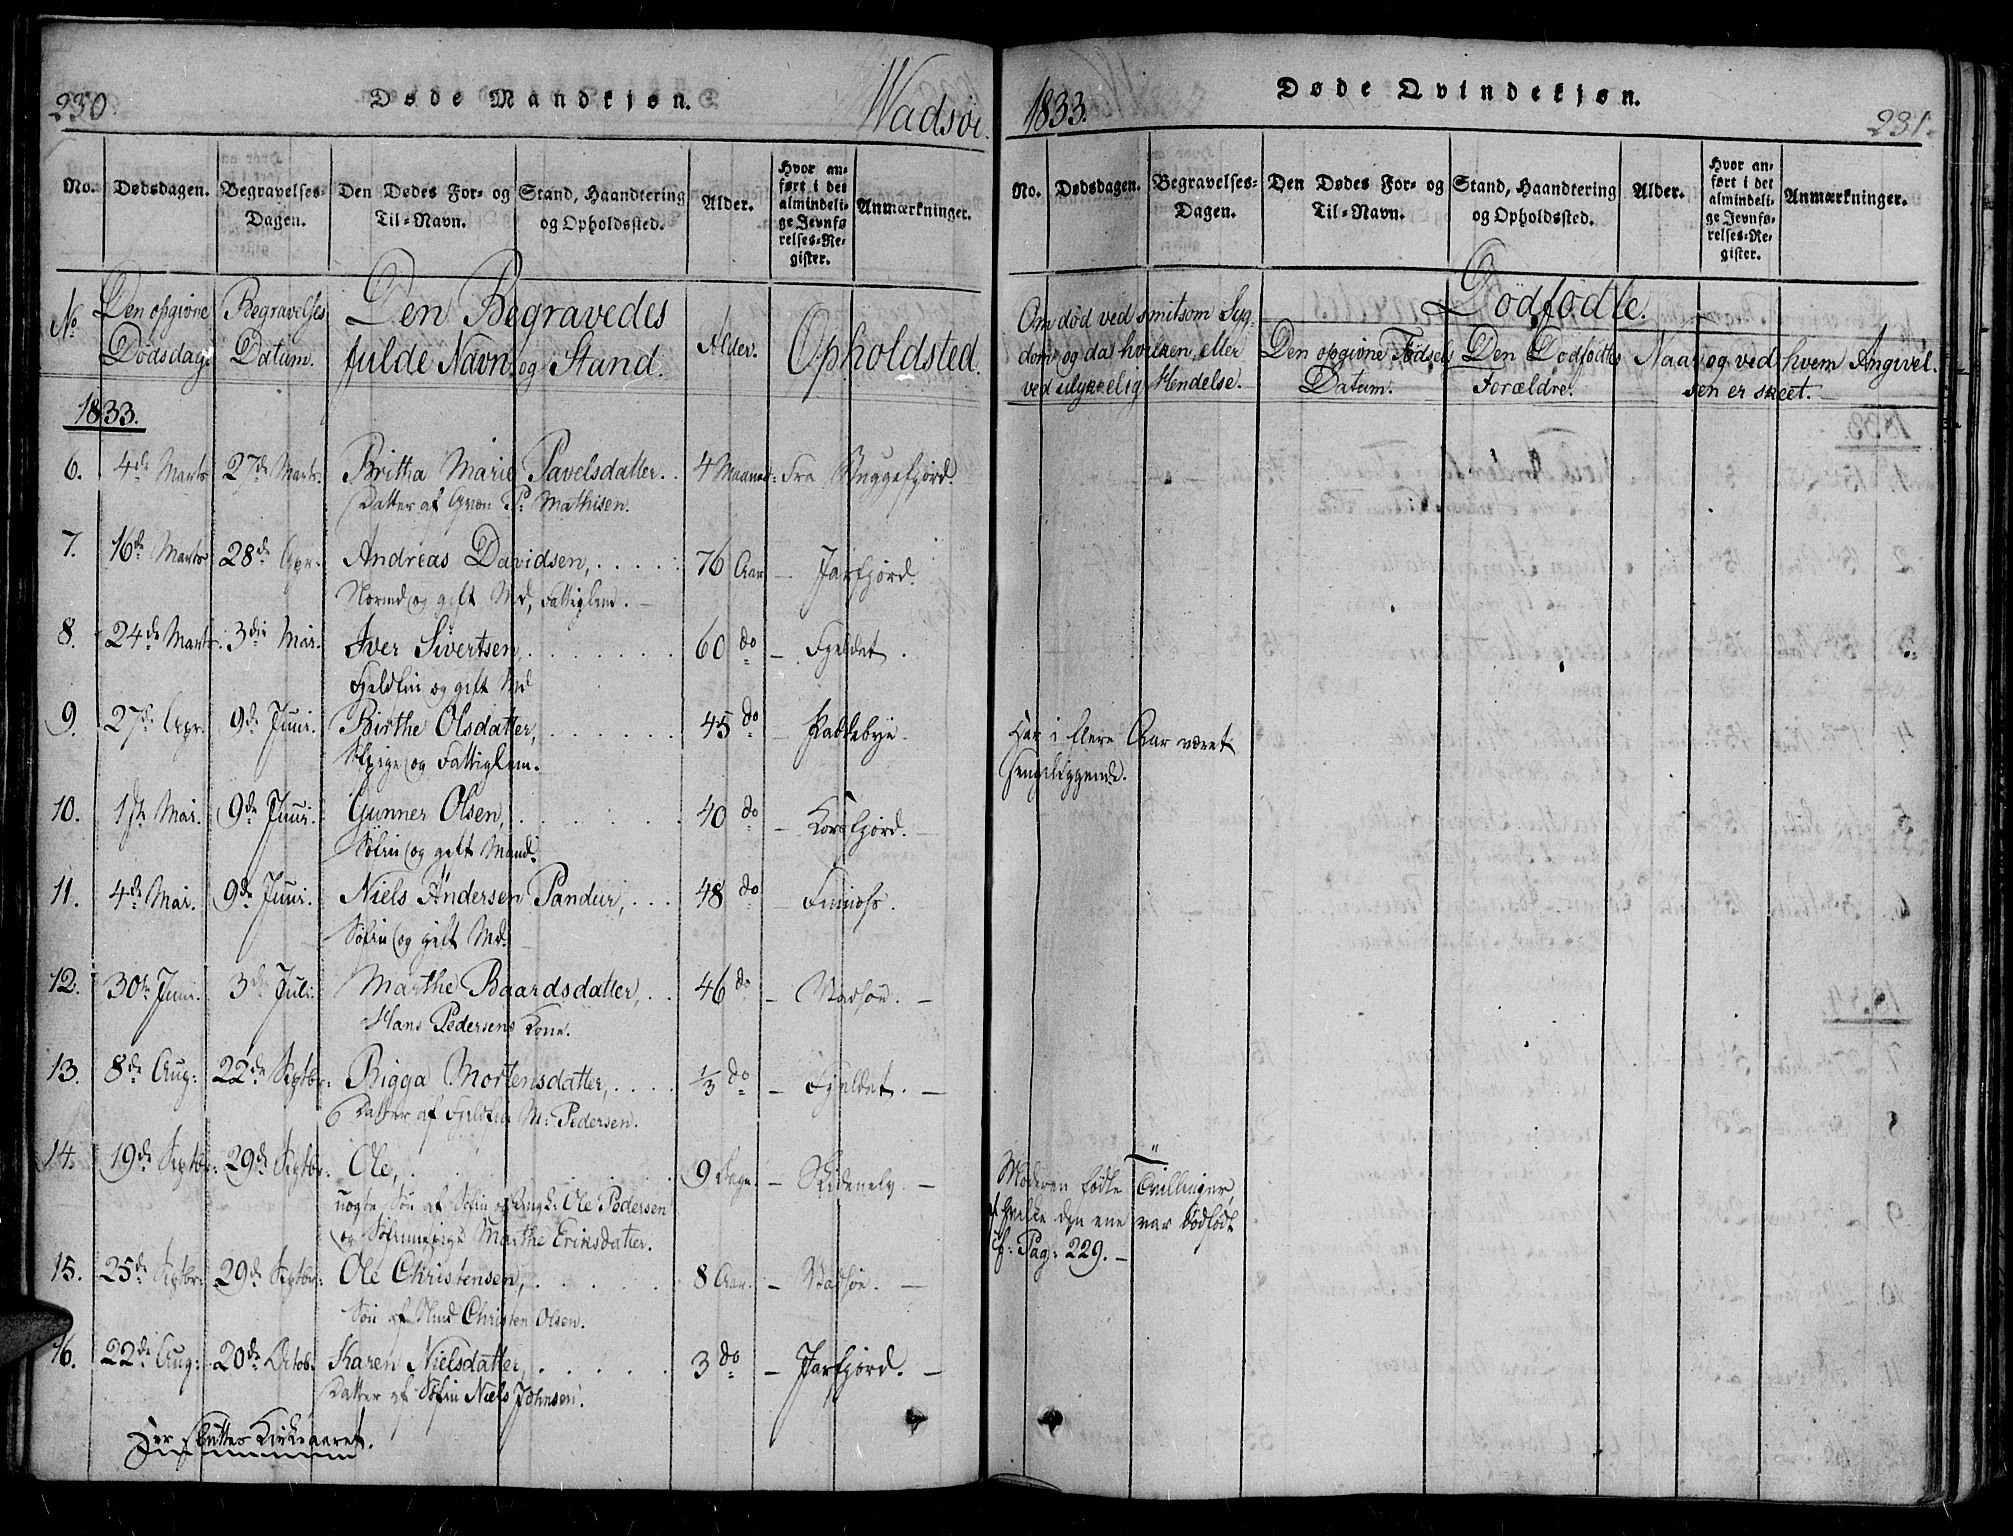 230.
Døde Mandkjøn.
Wadsöe
No.
Dødsdagen.
Begravelses-Dagen.
Den Dødes For- og Til-Navn.
Stand, Haandtering og Opholdssted.
Alder.
Hvor anført i det almindelige Jevnførelses-Register.
Anmærkninger.
No
Den opgivne Dödsdag.
Begravelses Datum.
Den Begravedes fulde Navn og Stand.
Alder.
Opholdsted.
1833.
6. 4de Marts 27de Marts. Britha Marie Pavelsdatter. 4 Maaned: Fra Buggefjord.
Datter af P: Mathisen.
7. 16de Marts 28de Apr. Andreas Davidsen, 76 Aar — Jarfjord.
Normd og gift Md, Fattiglem. —
8. 24de Marts. 3die Mai. Iver Sivertsen, 60 do — Fjeldet.
Fjeldfin og gift Md
9. 27de Apr. 9de Juni. Birthe Olsdatter, 45 do — Paddebye.
Pige og Fattiglem.
10. 1ste Mai. 9de Juni. Gunner Olsen, 40 do — Korsfjord. —
Søfin og gift Mand.
11. 4de Mai. 9de Juni. Niels Andersen Pandur, 48 do —
Søfin og gift Md.
12. 30te Juni. 3die Juli. Marthe Baardsdatter, 46 do — Wadsöe. —
Hans Pedersens Kone.
13. 8de Aug: 22de Septbr: Bigga Mortensdatter, 1/3 do — Fjeldet. —
Datter af Fjeldfin M: Pedersen.
14. 19de Septbr: 29de Septbr. Ole, 9 Dage. — —
uægte Søn af Søfin og Ungk: Ole Pedersen
og Søfinnepige Marthe Eriksdatter.
15. 25de Septbr: 29de Septbr: Ole Christensen, 8 Aar. — Wadsöe. —
Søn af Christen Olsen.
16. 22de Aug: 20de Octob. Karen Nielsdatter, 3 do — Jarfjord. —
Datter af Søfin Niels Johnsen.
Her sluttes Kirkeaaret.
1833.
Døde Qvindekjøn.
231.
No.
Dødsdagen.
Begravelses-Dagen.
Den Dødes For- og Til-Navn.
Stand, Haandtering og Opholdssted.
Alder.
Hvor anført i det almindelige Jevnførelses-Register.
Anmærkninger.
Om död ved smitsom Sygdom og da hvilken, eller ved ulykkelig Hendelse.
Dödfödte.
Den opgivne Födsels Datum.
Den Dödfödtes Forældre.
Naar og ved hvem Angivelsen er skeet.
Har i flere Aar været
sengeliggende.
Moderen fødte Tvillinger,
af hvilke den ene var dødfødt
cf: Pag: 229. —